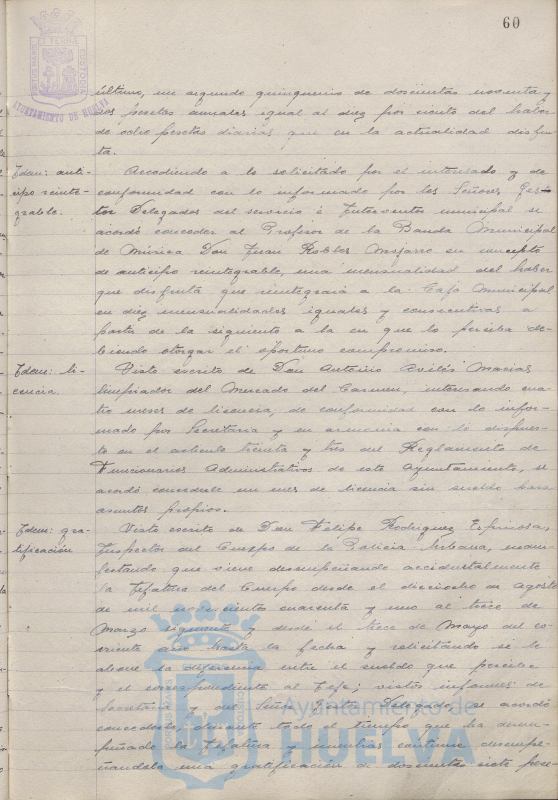 60
AYUNTAMIENTO DE HUELVA
último, un segundo quinquenio de doscientas noventa y
dos pesetas anuales igual al diez por ciento del haber
de ocho pesetas diarias que en la actualidad disfru-
ta.
Idem: anti-
cipo reinte-
grable.
Accediendo a lo solicitado por el interesado y de
conformidad con lo informado por los Señores Ges-
tor Delegados del servicio é Interventor municipal se
acordó conceder al Profesor de la Banda Municipal
de Música Don Juan Robles Mojarro en concepto
de anticipo reintegrable, una mensualidad del haber
que disfruta que reintegrará a la Caja Municipal
en diez mensualidades iguales y consecutivas a
partir de la siguiente a la en que lo perciba de-
biendo otorgar el oportuno compromiso.
Idem: li-
cencia.
Visto escrito de Don Antonio Avilés Macías
limpiador del Mercado del Carmen, interesando cua-
tro meses de licencia, de conformidad con lo infor-
mado por Secretaría y en armonía con lo dispues-
to en el artículo treinta y tres del Reglamento de
Funcionarios Administrativos de este Ayuntamiento, se
acordó concederle un mes de licencia sin sueldo para
asuntos propios.
Idem: gra-
tificación
Visto escrito de Don Felipe Rodriguez Espinosa,
Inspector del Cuerpo de la Policía Urbana, mani-
festando que viene desempeñando accidentalmente
la Jefatura del Cuerpo desde el dieciocho de Agosto
de mil novecientos cuarenta y uno al trece de
Marzo siguiente y desde el trece de Mayo del co-
rriente año hasta la fecha y solicitando se le
abone la diferencia entre el sueldo que percibe
y el correspondiente al Jefe; vistos informes de
Secretaría y del Señor Gestor Delegado, se acordó
concederle, durante todo el tiempo que ha desem-
peñado la Jefatura y mientras continúe desempe-
ñandola una gratificación de doscientas siete pese-
Ayuntamiento de
HUELVA